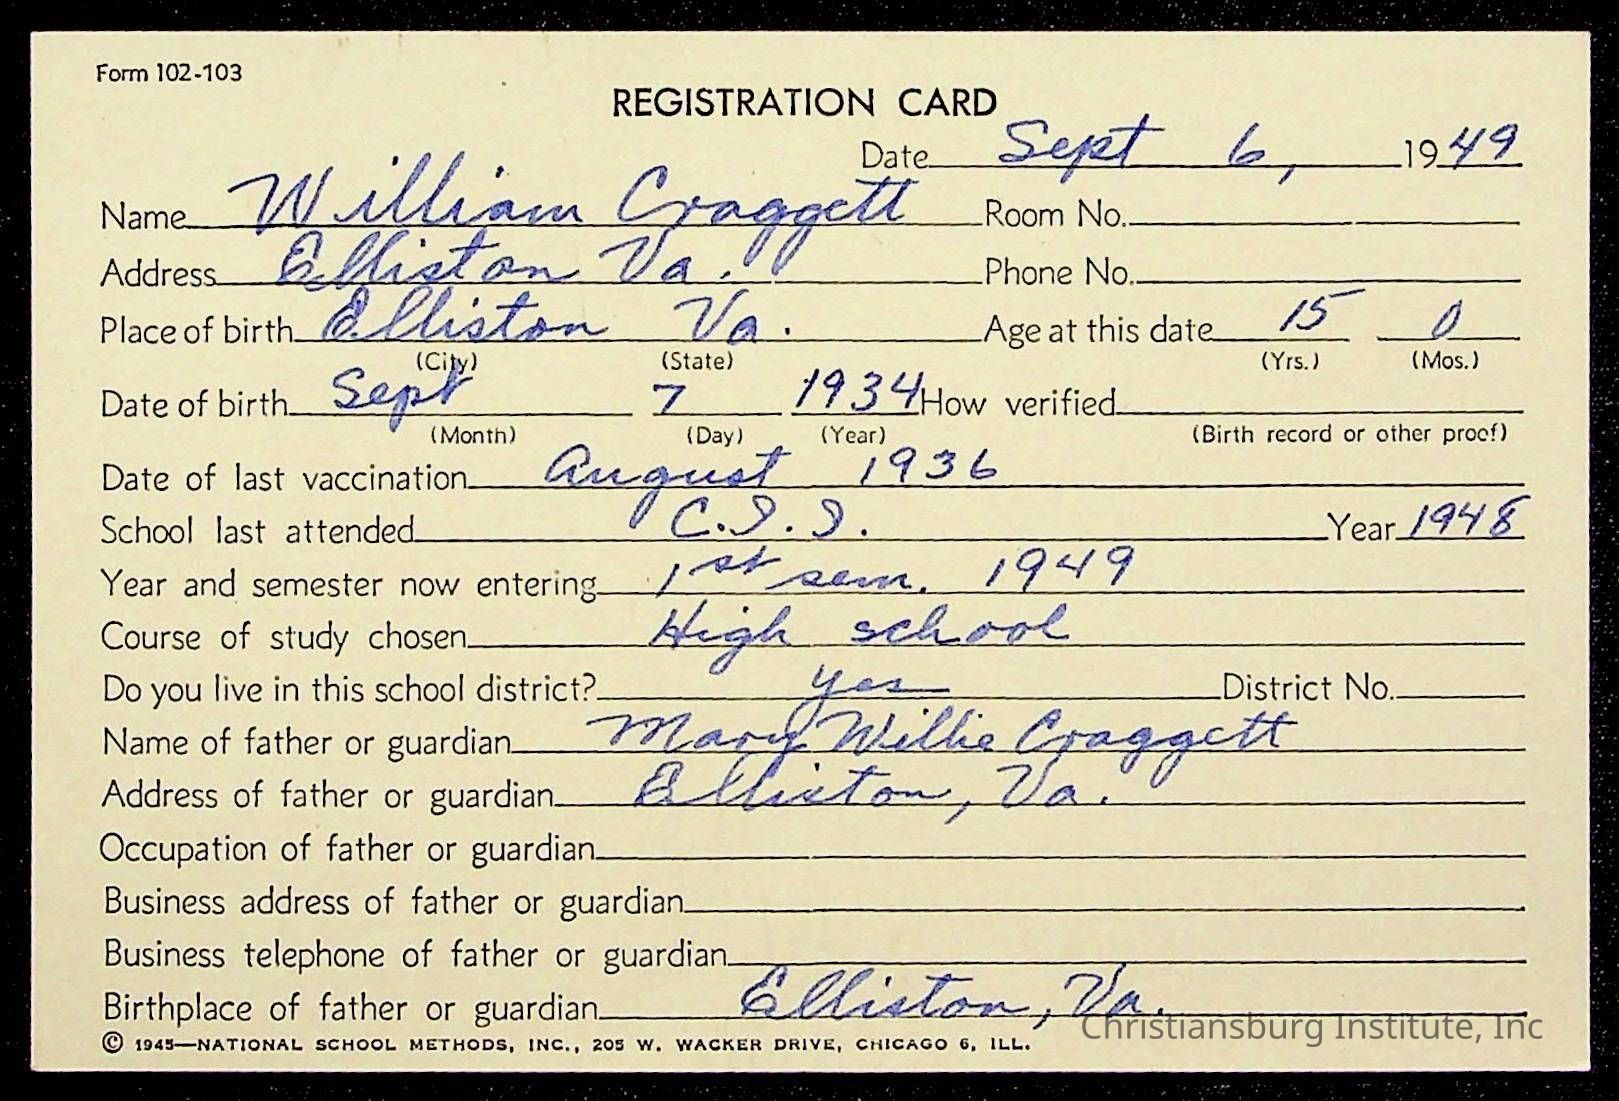 Form 102-103
REGISTRATION CARD
Date Sept 6, 1949
Name William Craggett Room No.
Address Elliston Va. Phone No.
Place of birth Elliston Va. Age at this date 15 0
(City) (State) (Yrs.) (Mos.)
Date of birth Sept 7 1934 How verified
(Month) (Day) (Year) (Birth record or other proof)
Date of last vaccination August 1936
School last attended C.I.I. Year 1948
Year and semester now entering 1st sem. 1949
Course of study chosen High school
Do you live in this school district? yes District No.
Name of father or guardian Mary Willie Craggett
Address of father or guardian Elliston, Va.
Occupation of father or guardian
Business address of father or guardian
Business telephone of father or guardian
Birthplace of father or guardian Elliston, Va.
© 1945—NATIONAL SCHOOL METHODS, INC., 205 W. WACKER DRIVE, CHICAGO 6, ILL.
Christiansburg Institute, Inc